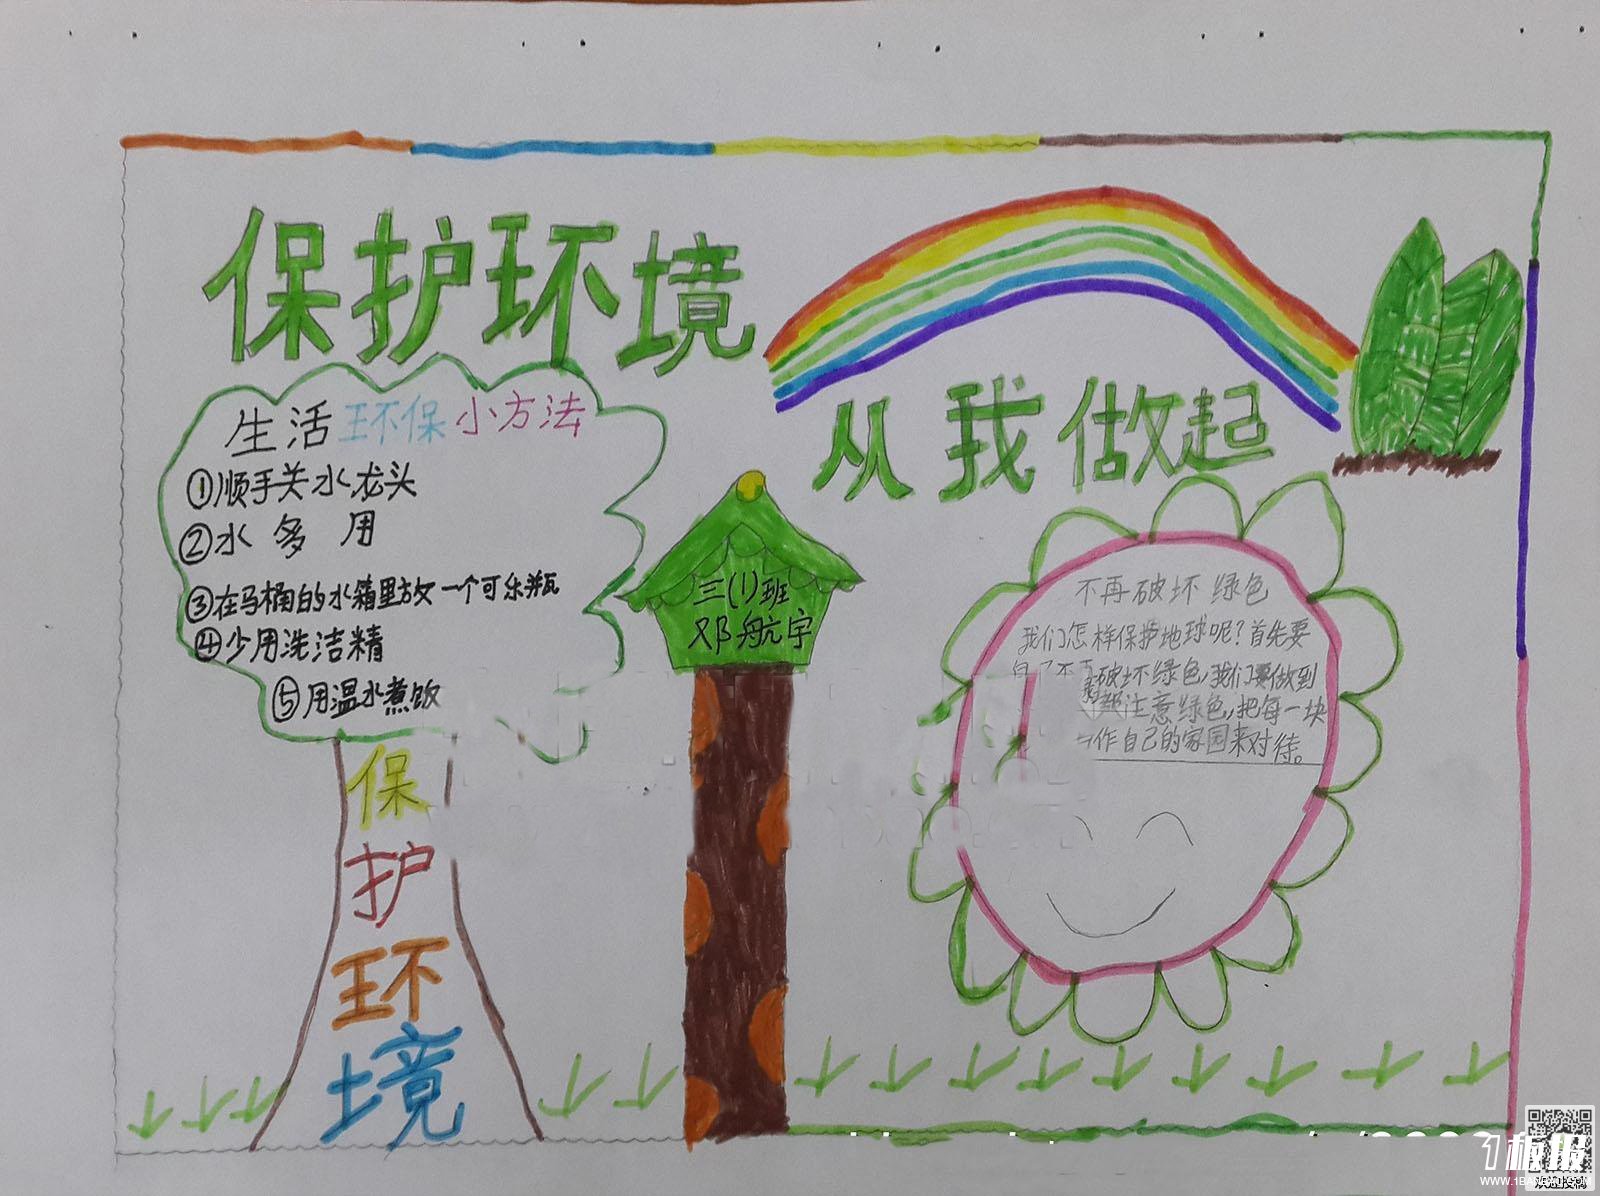 保护环境
从我做起
生活环保小方法
①顺手关水龙头
②水多用
③在马桶的水箱里放一个可乐瓶
④少用洗洁精
⑤用温水煮饭
保
护
环
境
三(1)班
邓航宇
不再破坏绿色
我们怎样保护地球呢?首先要
破坏绿色,我们要做到
注意绿色,把每一块
作自己的家园来对待。
1板报
WWW.1BANBAO.COM
欢迎投稿